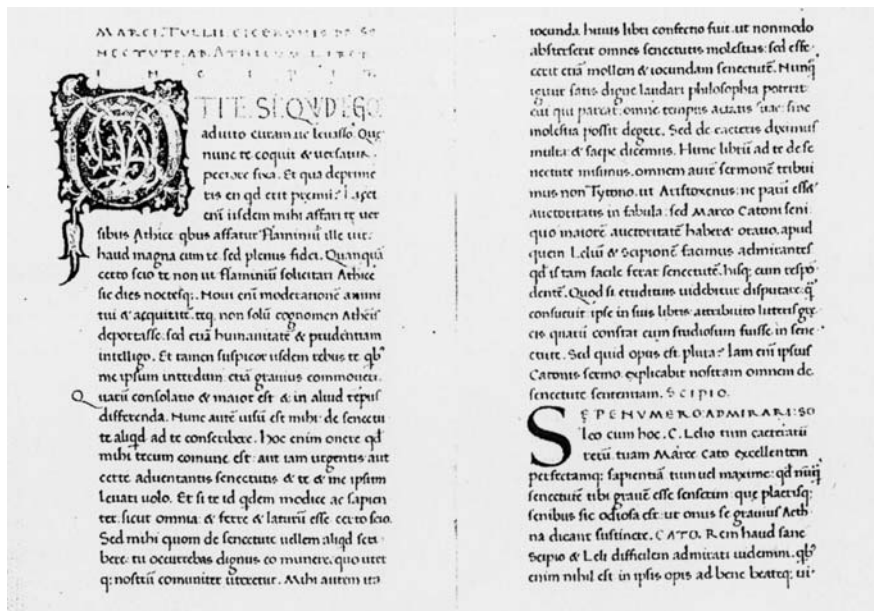 MARCI. TULLII. CICERONIS DE SE
NECTUTE. AD. ATHICUM. LIBER
INCIPIT
O TITE. SI. QVID. EGO
adiuto curam ue leuasso. Que
nunc te coquit & uersatur
pectore fixa. Et qua deprime
ris en qd erit premii? Licet
eni iisdem mihi affari te uer
sibus Athice qbus affatur Flaminiu ille uir.
haud magna cum re. sed plenus fidei. Quanquã
certo scio te non ut flaminiũ solicitari Athice
sic dies noctesq;. Noui enĩ moderationẽ animi
tui & aequitatẽ. teq. non solũ cognomen Atheĩs
deportasse. sed etiã humanitatẽ & prudentiam
intelligo. Et tamen suspicor iisdem rebus te qbꝰ
me ipsum interdum etiã grauius commoueri.
Quarũ consolatio & maior est & in aliud tẽpus
differenda. Nunc autẽ uisũ est mihi de senectu
te aliqd ad te conscribere. Hoc enim onere qđ
mihi tecum comune est. aut iam urgentis aut
certe aduentantis senectutis & te & me ipsum
leuari uolo. Et si te id qdem modice ac sapien
ter. sicut omnia & ferre & laturũ esse certo scio.
Sed mihi quom de senectute uellem aliqd scri
bere. tu occurrebas dignus eo munere. quo uter
q; nostrũ comuniter uteretur. Mihi autem ita
iocunda huius libri confectio fuit. ut non modo
absterserit omnes senectutis molestias: sed effe
cerit etiã mollem & iocundam senectutẽ. Nunq̃
igitur satis digne laudari philosophia poterit:
cui qui pareat. omne tempus aetatis suae: sine
molestia possit degere. Sed de caeteris diximus
multa & saepe dicemus. Hunc librũ ad te de se
nectute misimus. omnem autẽ sermonẽ tribui
mus non Tytono. ut Aristoxenus: ne parũ esset
auctoritatis in fabula: sed Marco Catoni seni.
quo maiorẽ auctoritatẽ haber& oratio. apud
quem Leliũ & Scipionẽ facimus admirantes
qđ is tam facile ferat senectutẽ. hisq; eum respõ
dentẽ. Quod si eruditius uidebitur disputare. q̃
consueuit ipse in suis libris: attribuito litteris gre
cis quarũ constat eum studiosum fuisse in sene
ctute. Sed quid opus est plura? Iam enĩ ipsius
Catonis sermo. explicabit nostram omnem de
senectute sententiam. SCIPIO.
SEPENVMERO. ADMIRARI: SO
leo cum hoc. C. Lelio tum caeterarũ
rerũ. tuam Marce Cato excellentem
perfectamq; sapientiã tum uel maxime: qđ nũq̃
senectutẽ tibi grauẽ esse senserim: que plerisq;
senibus sic odiosa est: ut onus se grauius Aeth
na dicant sustinere. CATO. Rem haud sane
Scipio & Leli difficilem admirari uidemini. qbꝰ
enim nihil est in ipsis opis ad bene beateq; ui